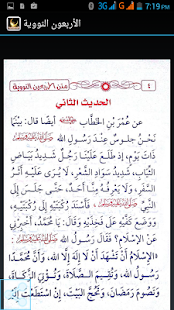 7:19 PM
الأربعون النووية
٤ متن الأربعين النووية
الحديث الثاني
عَن عُمَرَ بْنِ الْخَطَّابِ أيضًا قَالَ: بَيْنَمَا
نَحْنُ جُلُوسٌ عِنْدَ رَسُولِ اللهِ
ذَاتَ يَوْمٍ، إِذْ طَلَعَ عَلَيْنَا رَجُلٌ شَدِيدُ بَيَاضِ
الثِّيَابِ، شَدِيدُ سَوَادِ الشَّعْرِ، لَا يُرَى عَلَيْهِ أَثَرُ
السَّفَرِ، وَلَا يَعْرِفُهُ مِنَّا أَحَدٌ، حَتَّى جَلَسَ إِلَى
النَّبِيِّ فَأَسْنَدَ رُكْبَتَيْهِ إِلَى رُكْبَتَيْهِ،
وَوَضَعَ كَفَّيْهِ عَلَى فَخِذَيْهِ وَقَالَ: يَا مُحَمَّدُ، أَخْبِرْنِي
عَنِ الْإِسْلَامِ؟ فَقَالَ رَسُولُ اللهِ
«الْإِسْلَامُ أَنْ تَشْهَدَ أَنْ لَا إِلَهَ إِلَّا اللهُ، وَأَنَّ مُحَمَّدًا
رَسُولُ اللهِ، وَتُقِيمَ الصَّلَاةَ، وَتُؤْتِيَ الزَّكَاةَ،
وَتَصُومَ رَمَضَانَ، وَتَحُجَّ الْبَيْتَ، إِنِ اسْتَطَعْتَ إِلَيْهِ